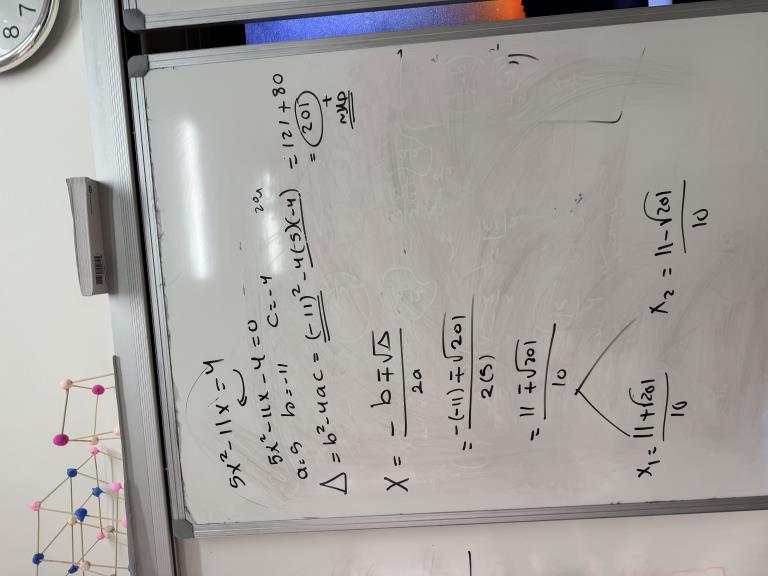 5x² - 11x = 4
5x² - 11x - 4 = 0
a=5 b=-11 c=-4
Δ = b² - 4ac = (-11)² - 4(-5)(-4) = 121 + 80
= 201
+
X = -b ∓ √Δ / 2a
= -(-11) ∓ √201 / 2(5)
= 11 ∓ √201 / 10
x₁ = 11 + √201 / 10 x₂ = 11 - √201 / 10
8 7